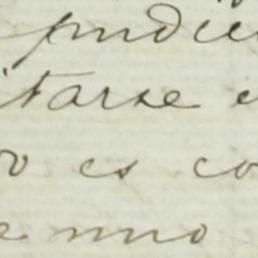 pudie
itarse e
o es co
e uno